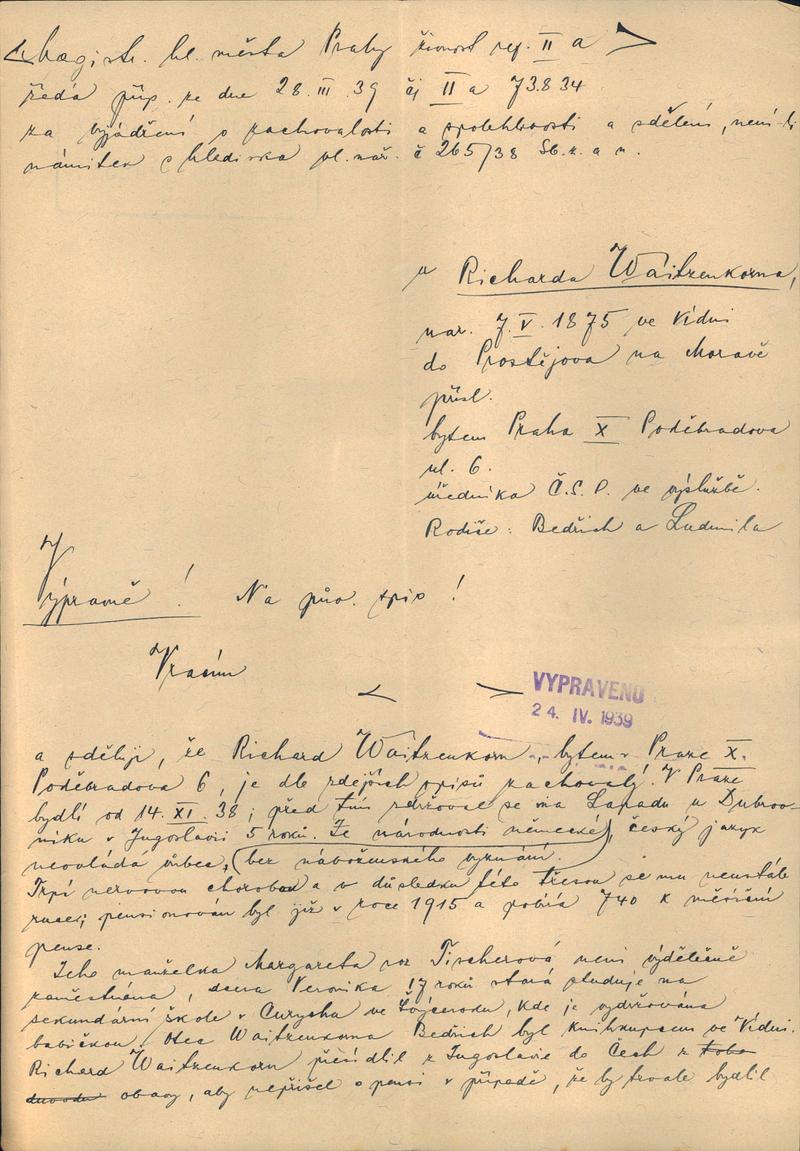 Magistr. hl. města Prahy živnost. ref. II a
žádá příp. ze dne 28. III. 39 čj II a 73834
za vyjádření o zachovalosti a spolehlivosti a sdělení, není-li
námitek s hlediska vl. nař. č 265/38 Sb. z. a n.
u Richarda Waitzenkorna,
nar. 7. V. 1875 ve Vídni
do Prostějova na Moravě
přísl.
bytem Praha X Poděbradova
ul. 6.
úředníka Č.S.P. ve výslužbě.
Rodiče: Bedřich a Ludmila
Výpravně! Na pův. spis!
Vracím
VYPRAVENO
24. IV. 1939
a sděluji, že Richard Waitzenkorn, bytem v Praze X.
Poděbradova 6, je dle zdejších spisů zachovalý. V Praze
bydlí od 14. XI. 38; před tím zdržoval se na Lapadu u Dubrov-
níku v Jugoslavii 5 roků. Je národnosti německé, český jazyk
neovládá vůbec, (bez náboženského vyznání.
Trpí nervovou chorobou a v důsledku této třesou se mu neustále
ruce; pensionován byl již v roce 1915 a pobírá 740 K měsíční
pense.
Jeho manželka Margareta roz Fischerová není výdělečně
zaměstnána, dcera Veronika 17 roků stará studuje na
sekundární škole v Curychu ve Švýcarsku, kde je vydržována
babičkou. Otec Waitzenkorna Bedřich byl knihkupcem ve Vídni.
Richard Waitzenkorn přesídlil z Jugoslavie do Čech z toho
důvodu obavy, aby nepřišel o pensi v případě, že by trvale bydlil